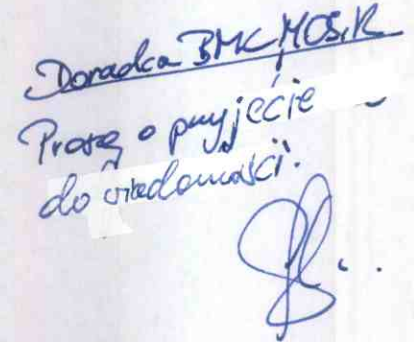 Doradca BMK MOSiR
Proszę o przyjęcie
do wiadomości.